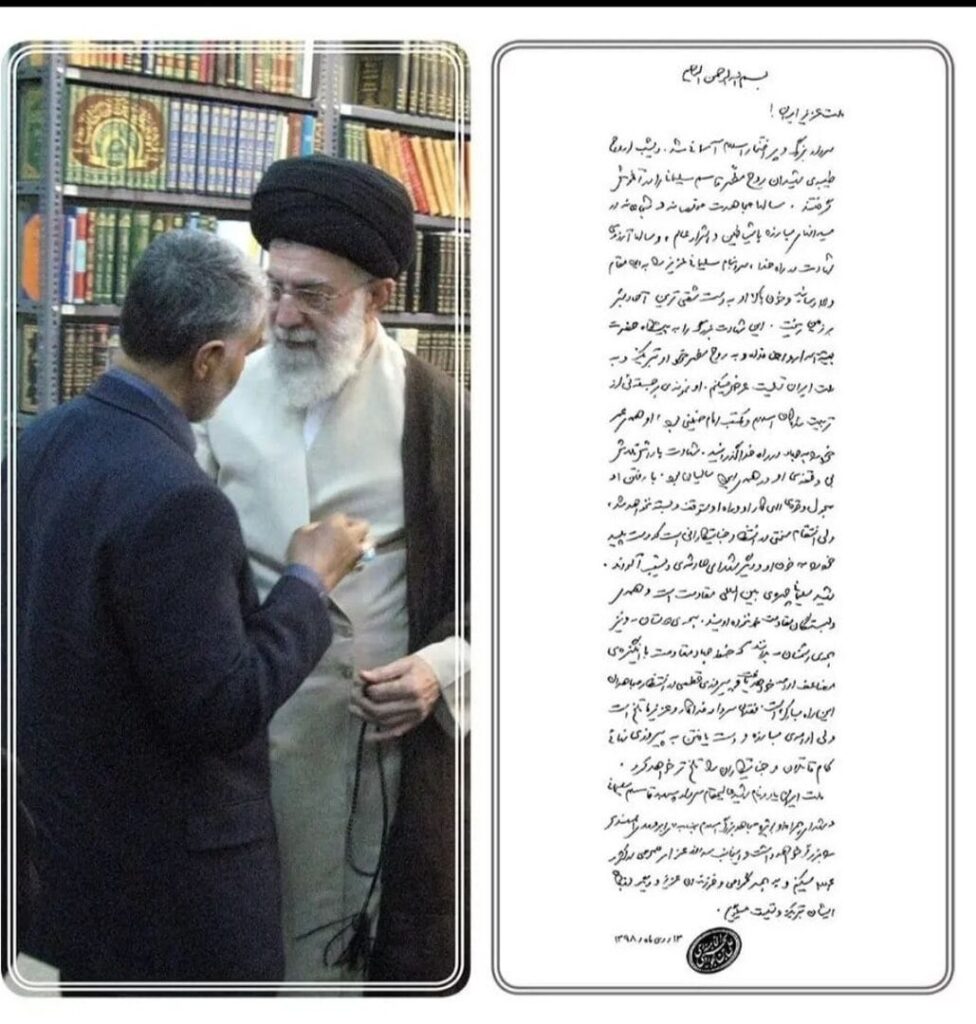 بسم الله الرحمن الرحیم
ملت عزیز ایران !
سردار بزرگ و پر افتخار اسلام آسمانی شد. دیشب ارواح
طیبه‌ی شهیدان روح مطهر قاسم سلیمانی را در آغوش
گرفتند . سالها مجاهدت مخلصانه و شجاعانه در
میدانهای مبارزه با شیاطین و اشرار عالم ، و سالها آرزوی
شهادت در راه خدا ، سرانجام سلیمانی عزیز را به این مقام
والا رساند و خون پاک او به دست شقی ترین آحاد بشر
بر زمین ریخت . این شهادت بزرگ را به پیشگاه حضرت
بقیة الله ارواحنا فداه و به روح مطهر خود او تبریک و به
ملت ایران تسلیت عرض میکنم . او نمونه‌ی برجسته‌ئی از
تربیت شدگان اسلام و مکتب امام خمینی بود ، او همه‌ی عمر
خود را به جهاد در راه خدا گذرانید . شهادت پاداش تلاش
بی وقفه‌ی او در همه‌ی این سالیان بود . با رفتن او
بحول و قوه‌ی الهی کار او و راه او متوقف و بسته نخواهد شد ،
ولی انتقام سختی در انتظار جنایتکارانی است که دست پلید
خود را به خون او و دیگر شهدای حادثه‌ی دیشب آلودند .
شهید سلیمانی چهره‌ی بین المللی مقاومت است و همه‌ی
دلبستگان مقاومت خونخواه اویند . همه‌ی دوستان - و نیز
همه‌ی دشمنان - بدانند که خط جهاد مقاومت با انگیزه‌ی
مضاعف ادامه خواهد یافت و پیروزی قطعی در انتظار مجاهدان
این راه مبارک است . فقدان سردار فداکار و عزیز ما تلخ است
ولی ادامه‌ی مبارزه و دست یافتن به پیروزی نهائی
کام قاتلان و جنایتکاران را تلخ تر خواهد کرد .
ملت ایران یاد و نام شهید عالیمقام سردار سپهبد قاسم سلیمانی
و شهدای همراه او بویژه مجاهد بزرگ اسلام جناب ابومهدی المهندس
را بزرگ خواهد داشت و اینجانب سه روز عزای عمومی در کشور
اعلام میکنم و به همسر گرامی و فرزندان عزیز و دیگر بستگان
ایشان تبریک و تسلیت میگویم .
۱۳ / دی ماه / ۱۳۹۸